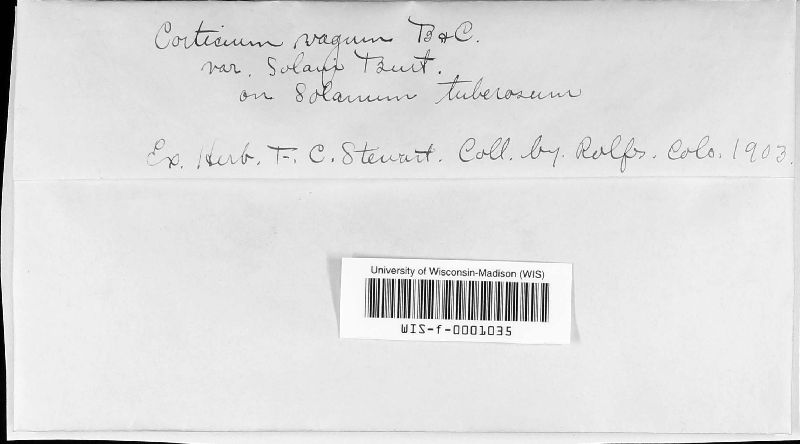 Corticium vagum B & C.
var. Solani Burt.
on Solanum tuberosum
Ex. Herb. F. C. Stewart. Coll. by. Rolfs. Colo. 1903.
University of Wisconsin-Madison (WIS)
WIS-f-0001035